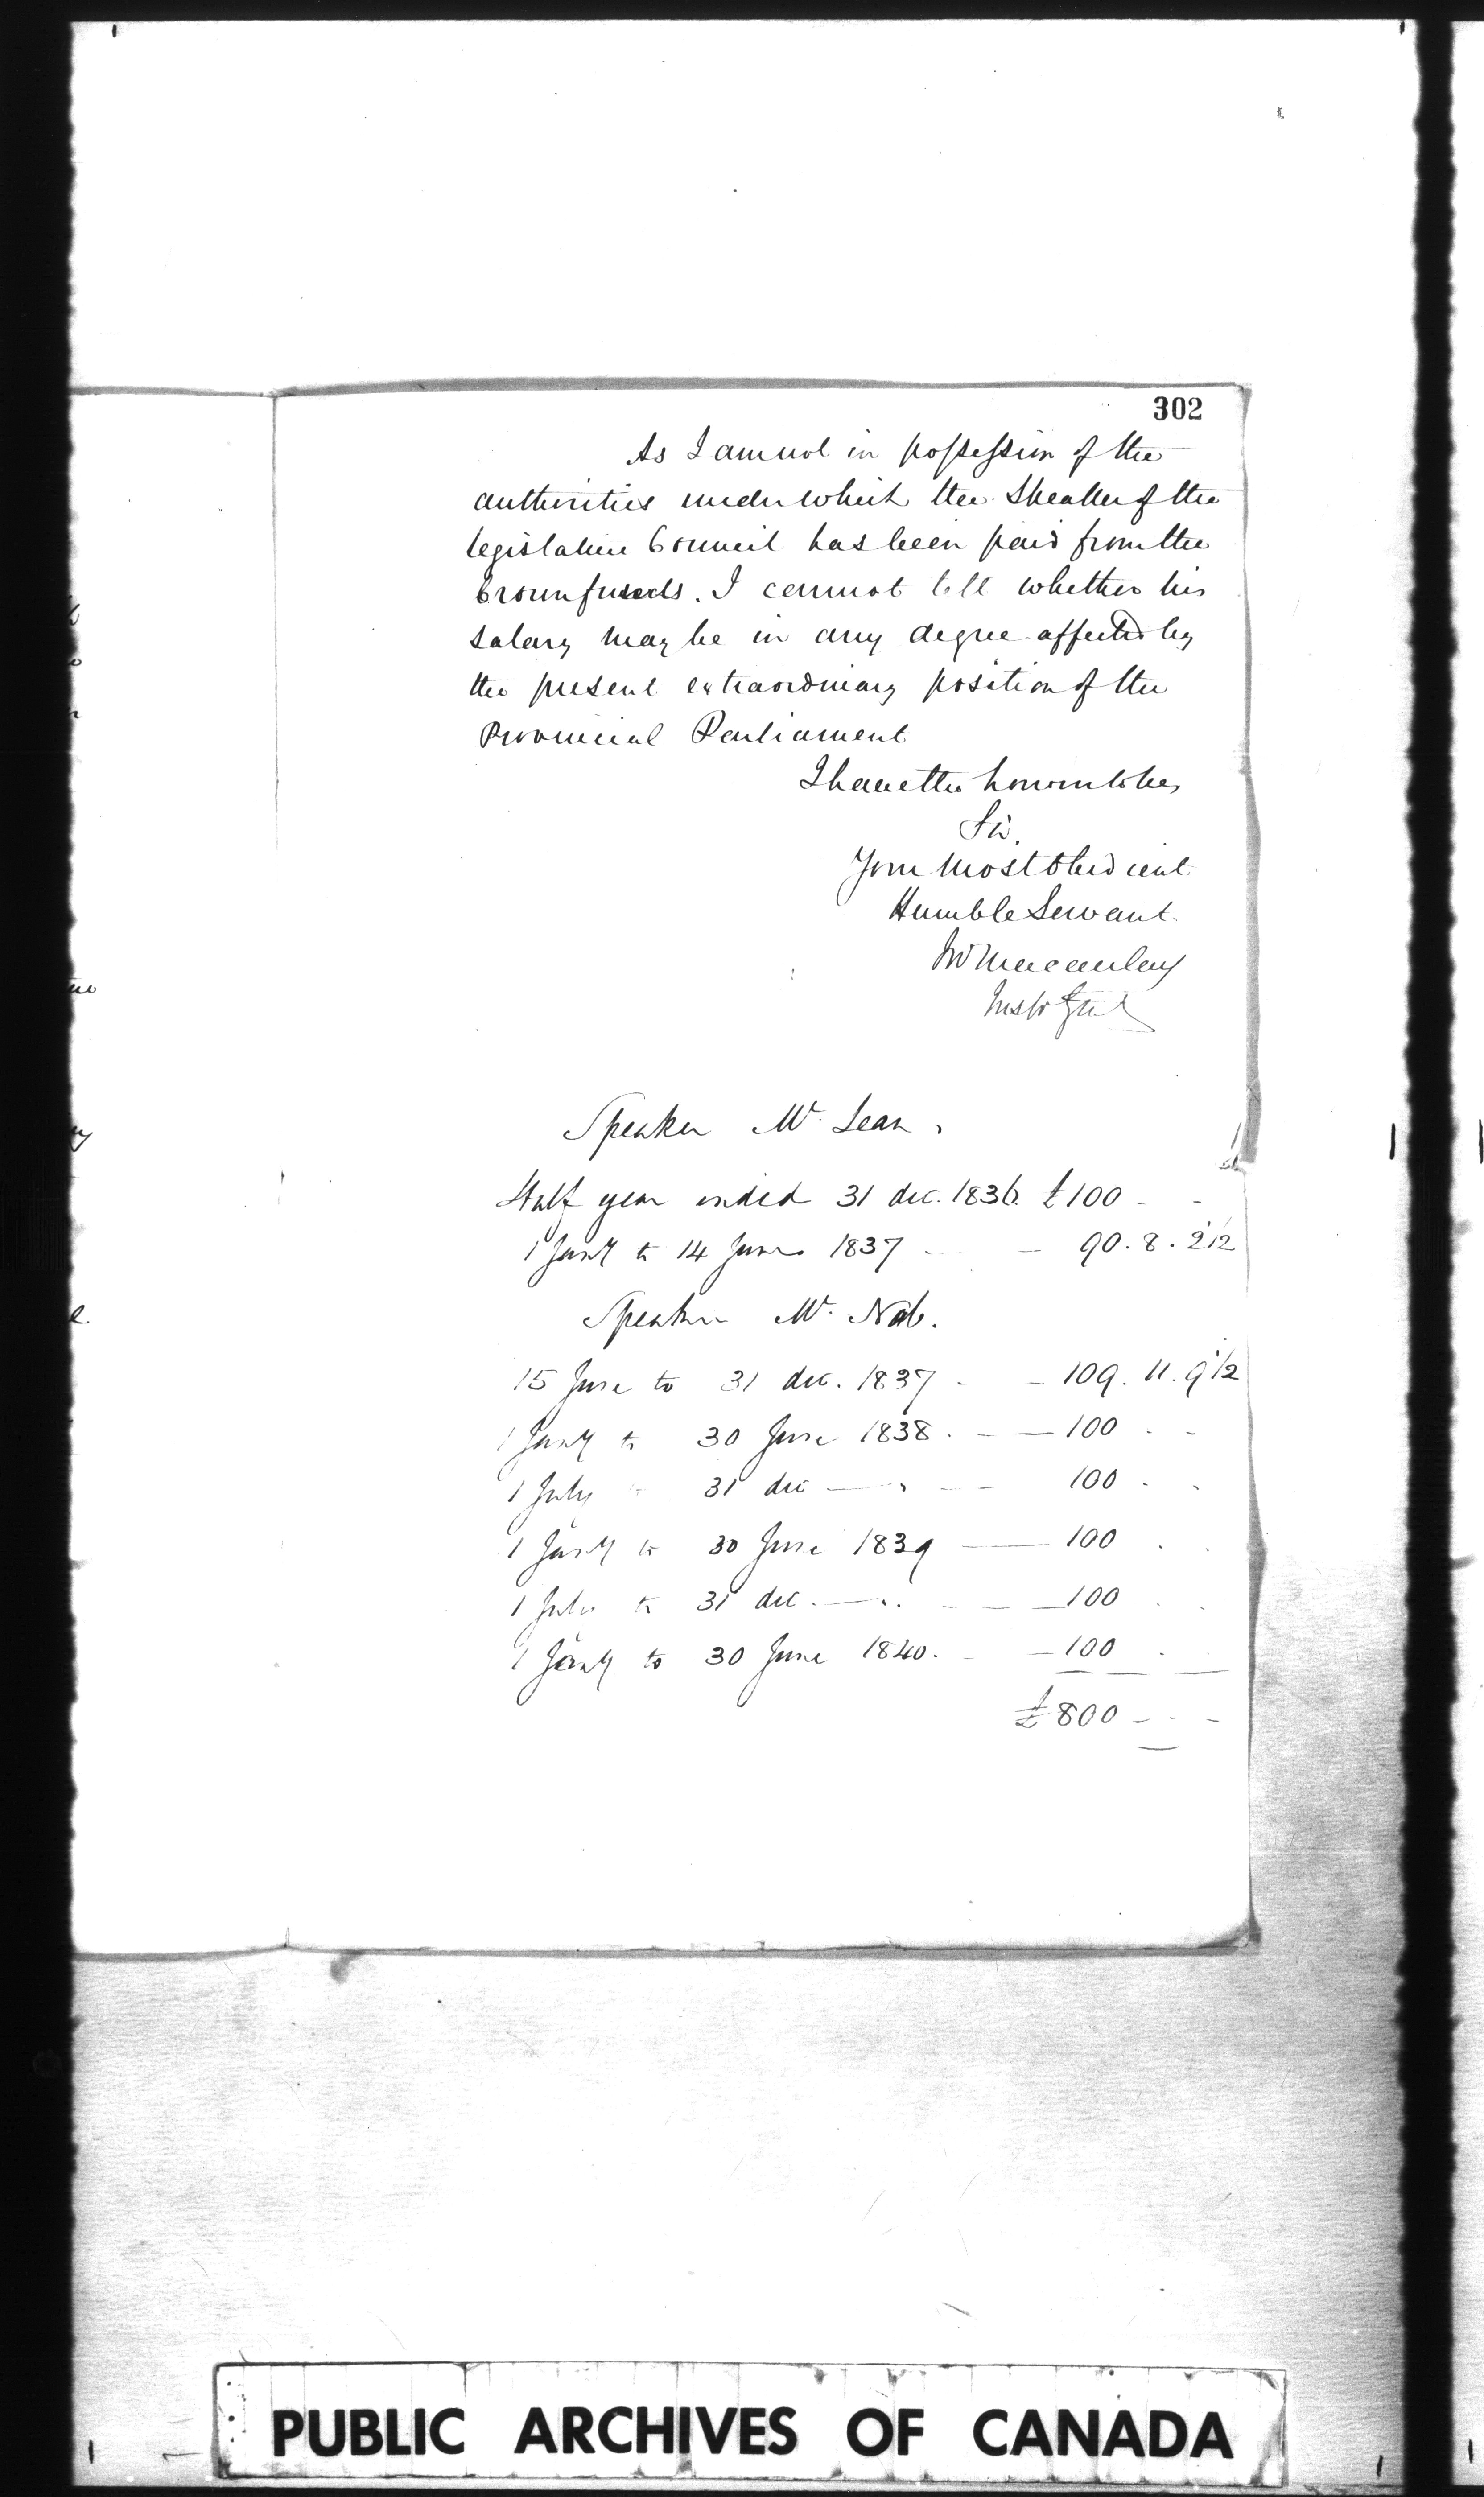 302
As I am not in possession of the
authorities under which the Speaker of the
legislative Council has been paid from the
Crown funds. I cannot tell whether his
salary may be in any degree affected by
the present extraordinary position of the
Provincial Parliament
I have the honour to be,
Sir,
Your most obedient
Humble Servant.
Jno Macaulay
Insp Genl
Speaker Mc Lean,
Half year ended 31 dec. 1836. £100 - -
1 Jany to 14 June 1837 - - 90. 8. 2 1/2
Speaker Mc Nab.
15 June to 31 dec. 1837 - - 109. 11. 9 1/2
1 Jany to 30 June 1838. - — 100 - -
1 July - 31 dec — " — 100 - -
1 Jany to 30 June 1839 — 100 . .
1 July to 31 dec. — " - — 100 . .
1 Jany to 30 June 1840. - — 100 . .
£800 - . -
PUBLIC ARCHIVES OF CANADA